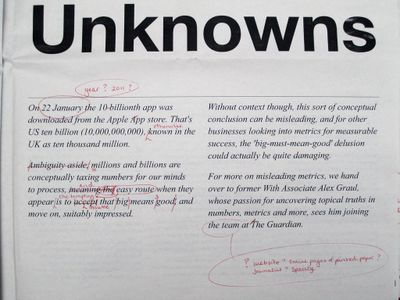 Unknowns
year? 2011?
On 22 January the 10-billionth app was
downloaded from the Apple App store. That's
otherwise
US ten billion (10,000,000,000), known in the
UK as ten thousand million.
Ambiguity aside, millions and billions are
conceptually taxing numbers for our minds
and
to process, meaning the easy route when they
the temptation
appear is to accept that big means good, and
assume
move on, suitably impressed.
Without context though, this sort of conceptual
conclusion can be misleading, and for other
businesses looking into metrics for measurable
success, the 'big-must-mean-good' delusion
could actually be quite damaging.
For more on misleading metrics, we hand
over to former With Associate Alex Graul,
whose passion for uncovering topical truths in
numbers, metrics and more, sees him joining
the team at The Guardian.
? website? online pages of printed paper?
Journalist? Specify